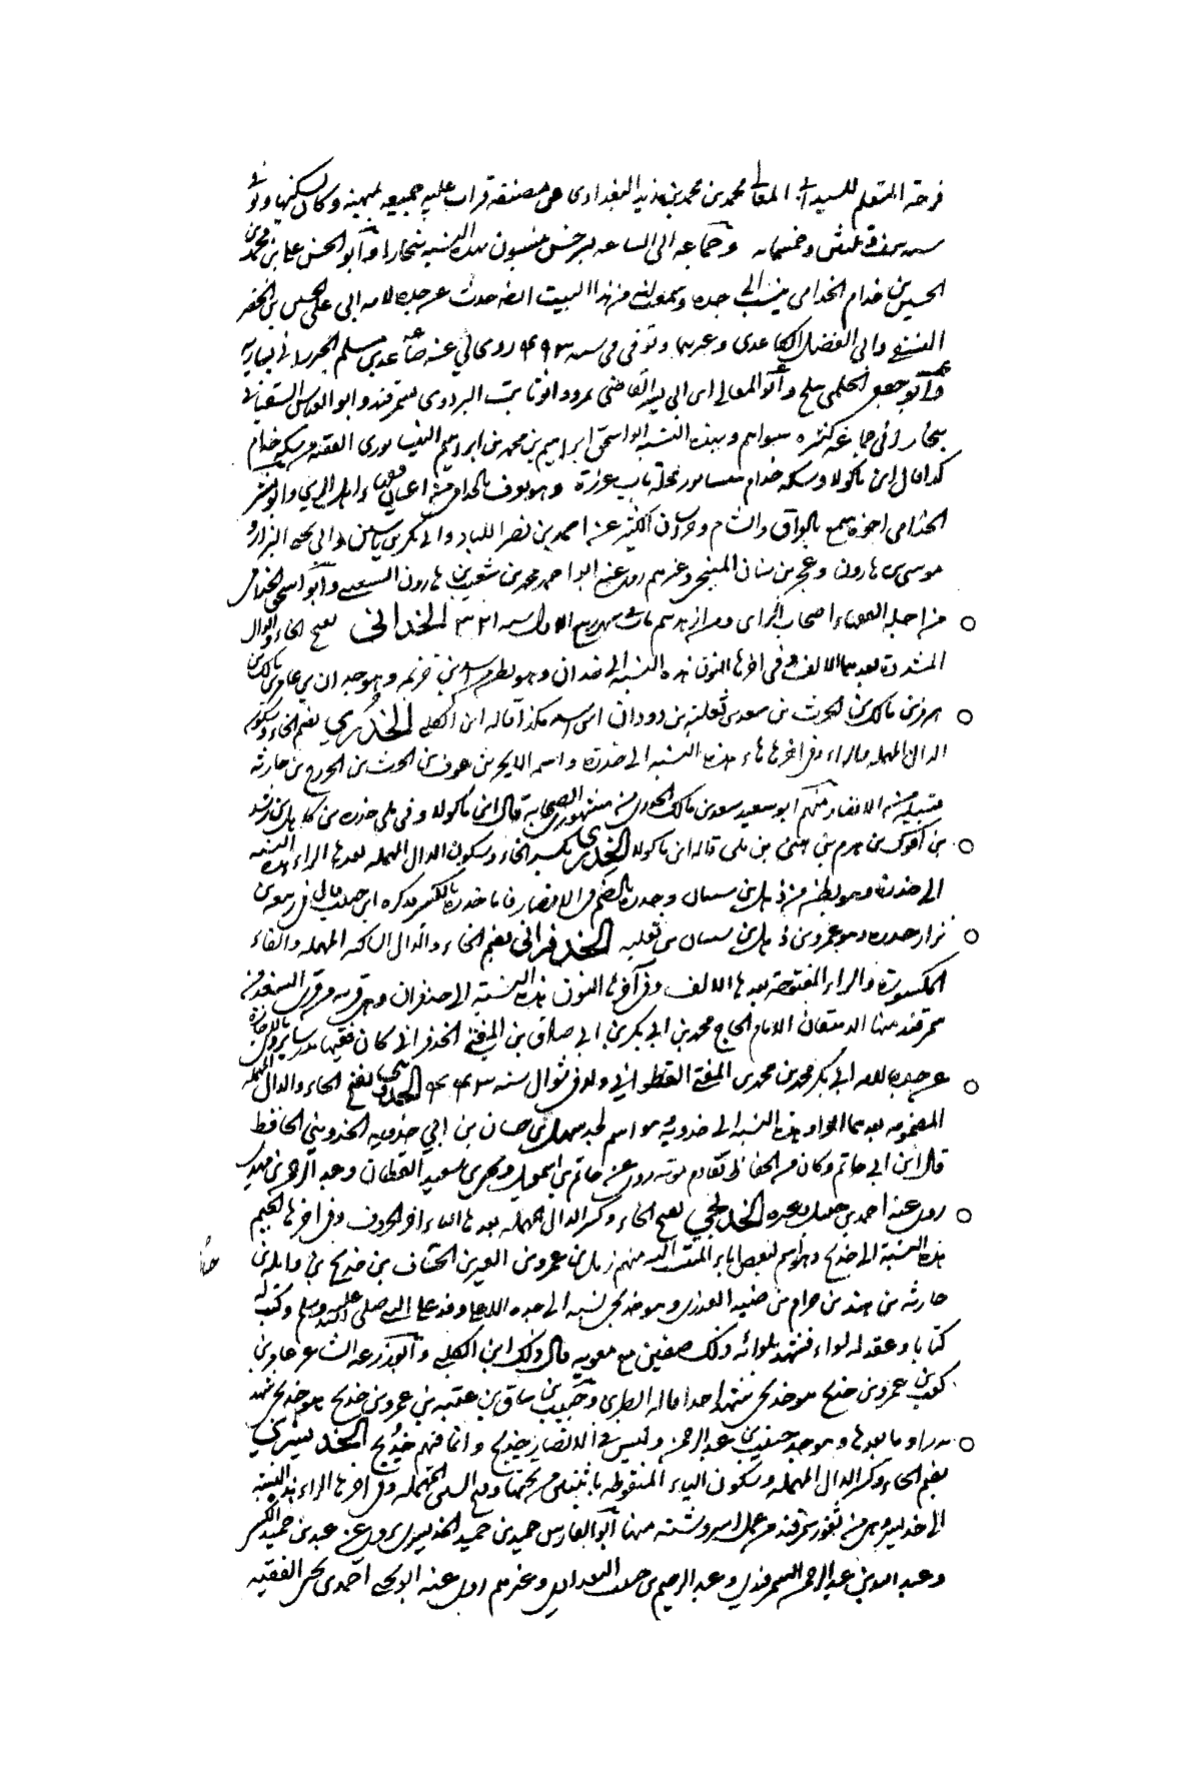 فرحة المتعلم للسيد ابي المعالي محمد بن محمد بن زيد البغدادي عن مصنفه قرات عليه جميعه بميهنه وكان يسكنها وتوفي
سنة وثلثين وخمسمايه وجماعه الى الساعه بسرخس ينسبون بهذه النسبة ببخارا وابو الحسن علي بن محمد بن
الحسين بن خدام الخدامي ينسب الى جده من هذا البيت ايضا حدث عن جده لامه ابي علي الحسين بن الخضر
النسفي وابي الفضل الكاغدي وغيرهما وتوفي في سنه ٤٩٣ روى لي عنه صاعد بن مسلم
وابو جعفر الحلمي ببلخ وابو المعالي ابن ابي اليسر القاضي بمرو وابو ثابت البزدوي بسمرقند وابو العباس
ببخارا في جماعة كثيره سواهم وبهذه النسبة ابو اسحق ابراهيم بن محمد بن ابراهيم النيسابوري الفقيه من سكة خدام
كذا قال ابن ماكولا وسكة خدام بنيسابور محلة باب عزرة وهو يعرف بالخدامي من اعيان فقهاء اهل الري وابو بشر
الخدامي اخوه سمع بالعراق والشام وخراسان الكثير عن احمد بن نصر اللباد وابي بكر بن ياسين وابي يحيى البزار و
موسى بن هارون وعمر بن سنان المنبجي وغيرهم روى عنه ابو احمد محمد بن شعيب بن هارون الشعيبي وابو اسحق الخدامي
من اجلة الفقهاء اصحاب الراي مات في شهر ربيع الاول سنه ٣٢١ الخداني بفتح الخاء والدال
المشددة بعدهما الالف وفي اخرها النون هذه النسبة الى خدان وهو بطن من اسد بن خزيمه وهو خدان بن عامر بن مالك بن
هر بن مالك بن الحرث بن سعد بن ثعلبة بن دودان بن اسد هكذا قاله ابن الكلبي الخدري بضم الخاء وسكون
الدال المهمله والراء وفي اخرها هاء هذه النسبة الى خدرة واسمه الابجر بن عوف بن الحرث بن الخزرج بن حارثه
قبيلة من الانصار منهم ابو سعيد سعد بن مالك الخدري من مشهوري الصحابة قال ابن ماكولا وفي بلي خدره بن كاهل بن رشد
بن افرك بن هرم بن هني بن بلي قاله ابن ماكولا الخدري بكسر الخاء وسكون الدال المهمله بعدها الراء هذه النسبه
الى خدرة وهو بطن من ذهل بن شيبان وخدره بالضم في الانصار فاما خدره بالكسر فذكره ابن حبيب قال في ربيعه بن
نزار خدره وهو عمرو بن ذهل بن شيبان بن ثعلبه الخدفراني بضم الخاء والدال الساكنه المهمله والفاء
المكسورة والراء المفتوحة بعدها الالف وفي اخرها النون هذه النسبة الى خدفران وهي قريه من قرى السغد من
سمرقند منها الدهقان الامام الحاج محمد بن ابي بكر بن ابي صادق بن المفتي الخدفراني كان فقيها مدرسا يروي بالاجازة
عن جده لامه ابي بكر محمد بن محمد بن المفتي القطواني ولد في شوال سنه ٤٨٣ الخدويي بفتح الخاء والدال المهمله
المضمومه بعدهما الواو هذه النسبة الى خدويه وهو اسم لجد سهل بن حسان بن ابي خدويه الخدويي الحافظ
قال ابن ابي حاتم وكان من الحفاظ تقادم موته روى عن حاتم بن اسمعيل ويحيى بن سعيد القطان وعبد الرحمن بن مهدي
روى عنه احمد بن حنبل وغيره الخديجي بفتح الخاء وكسر الدال المهمله بعدها الياء اخر الحروف وفي اخرها الجيم
هذه النسبة الى خديج وهو اسم لبعض اباء المنتسب اليه منهم زمل بن عمرو بن العير بن الخشاف بن خديج بن واثلة بن
حارثه بن هند بن حرام بن ضنه العذري وهو خديجي نسبه الى جده الاعلى وفد على النبي صلى الله عليه وسلم وكتب له
كتابا وعقد له لواء فشهد بلوائه ذلك صفين مع معويه قال ذلك ابن الكلبي وابو زرعه الشاعر عامر بن
كعب بن عمرو بن خديج هو خديجي شهد احدا قاله الطبري وحبيب بن ساف بن عتبه بن عمرو بن خديج هو خديجي شهد
بدرا وما بعدها وهو جد خبيب بن عبد الرحمن وليس في الانصار خديج وانما فيهم خديج الخديسري
بضم الخاء وكسر الدال المهمله وسكون الياء المنقوطه باثنتين من تحتها وفتح السين المهمله وفي اخرها الراء هذه النسبة
الى خديسر وهي من ثغور سمرقند من عمل اسروشنه منها ابو الفارس حميد بن حميد الخديسري يروي عن عبد بن حميد الكسي
وعبد الله بن عبد الرحمن السمرقندي وعبد الرحيم بن حبيب البغدادي وغيرهم روى عنه ابو يحيى احمد بن يحيى الفقيه